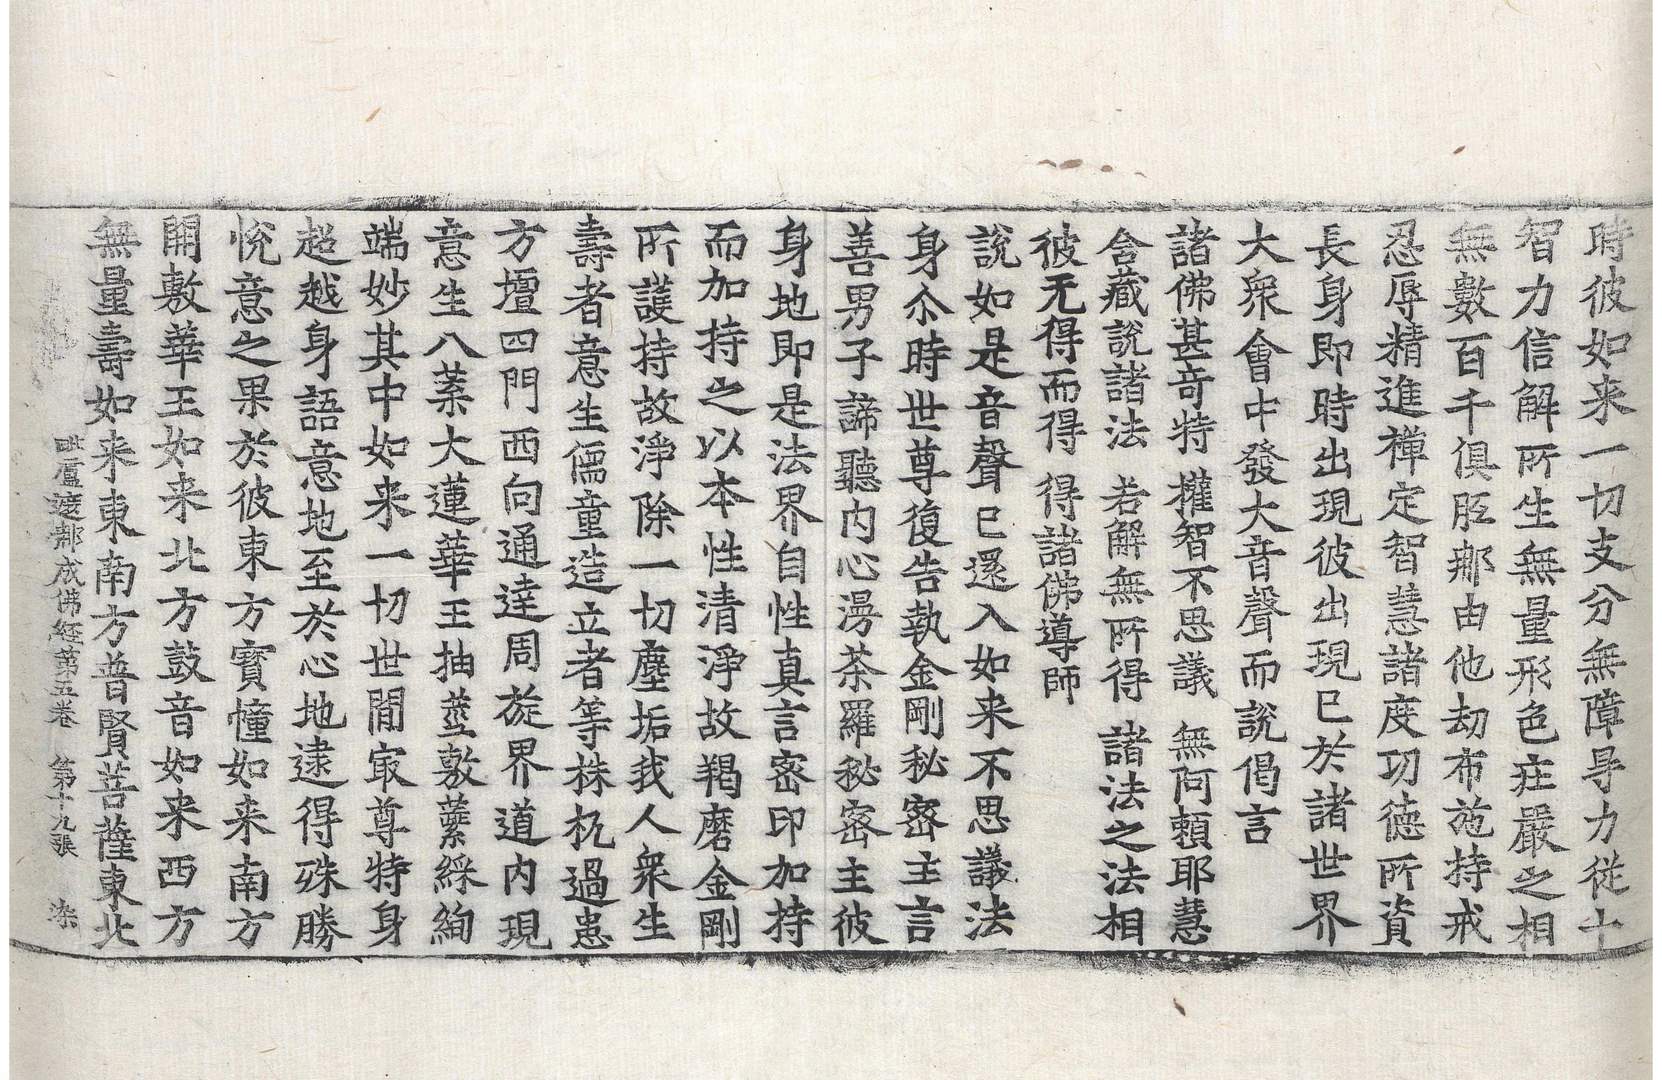 時彼如来一切支分無障㝵力從十
智力信解所生無量形色庄嚴之相
無數百千俱胝那由他劫布施持戒
忍辱精進禪定智慧諸度功德所資
長身即時出現彼出現已於諸世界
大衆會中發大音聲而說偈言
諸佛甚竒特 權智不思議 無阿賴耶慧
含藏說諸法 若解無所得 諸法之法相
彼无得而得 得諸佛導師
說如是音聲已還入如来不思議法
身尒時世尊復告執金剛秘密主言
善男子諦聽内心漫荼羅秘密主彼
身地即是法界自性真言密印加持
而加持之以本性清淨故羯磨金剛
所護持故淨除一切塵垢我人衆生
壽者意生儒童造立者等株杌過患
方壇四門西向通達周旋界道内現
意生八葉大蓮華王抽莖敷蘂綵絢
端妙其中如来一切世間冣尊特身
超越身語意地至於心地逮得殊勝
悅意之果於彼東方寶幢如来南方
開敷華王如来北方鼓音如来西方
無量壽如来東南方普賢菩薩東北
毗盧遮那成佛經第五卷 第十九張 染